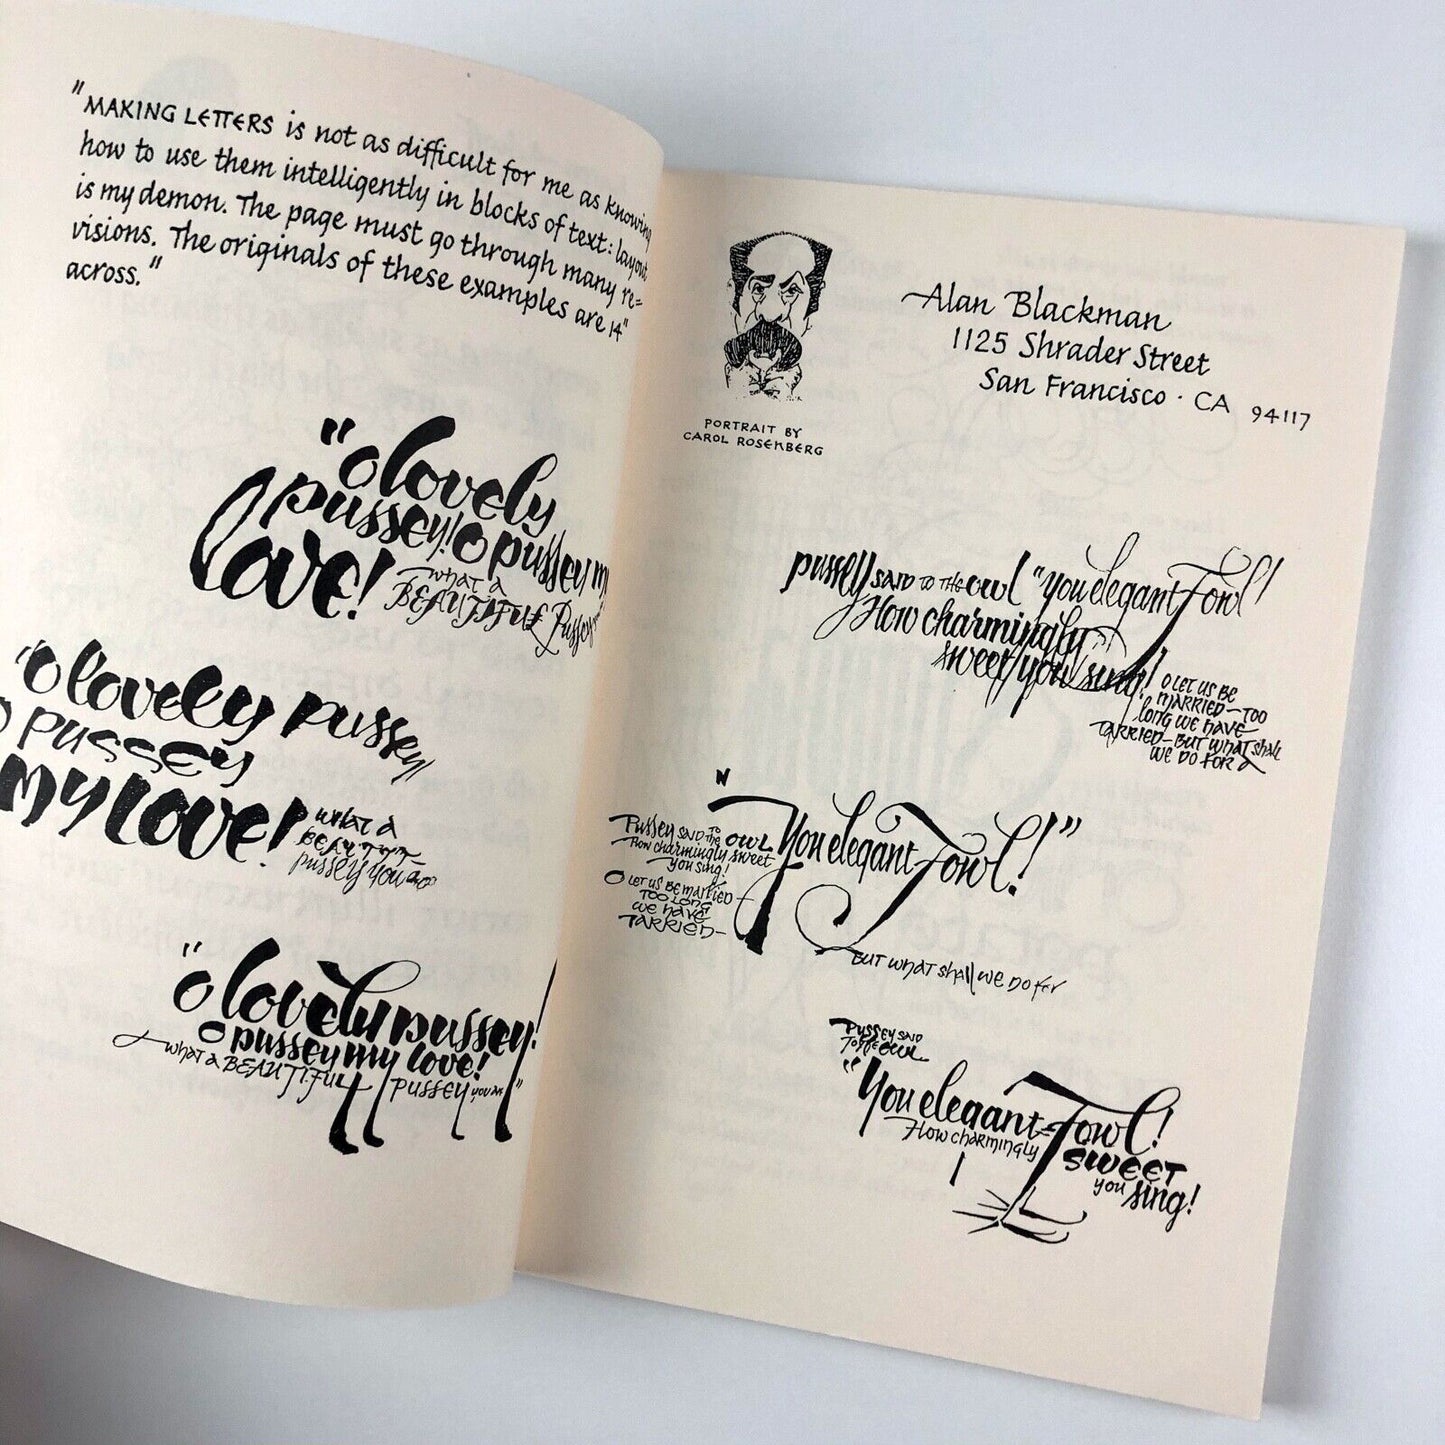 "MAKING LETTERS is not as difficult for me as knowing
how to use them intelligently in blocks of text: layout
is my demon. The page must go through many re=
visions. The originals of these examples are 14"
across."
"O lovely
pussey! O pussey my
love! what a
BEAUTIFUL Pussey
"O lovely pussey!
O pussey
my love! what a
BEAUTY
pussey you are
"O lovely pussey!
O pussey my love!
what a BEAUTIFUL pussey you are"
PORTRAIT BY
CAROL ROSENBERG
Alan Blackman
1125 Shrader Street
San Francisco · CA 94117
pussey said to the owl "you elegant Fowl!
How charmingly
sweet you sing! O LET US BE
MARRIED—TOO
LONG WE HAVE
TARRIED—BUT WHAT shall
WE DO FOR A
Pussey said to the OWL "You elegant Fowl!"
How charmingly sweet
you sing!
O LET US BE MARRIED—
TOO LONG
WE HAVE
TARRIED—
BUT WHAT shall WE DO FOR
PUSSEY SAID
TO THE OWL
"You elegant Fowl!
How charmingly SWEET
you sing!